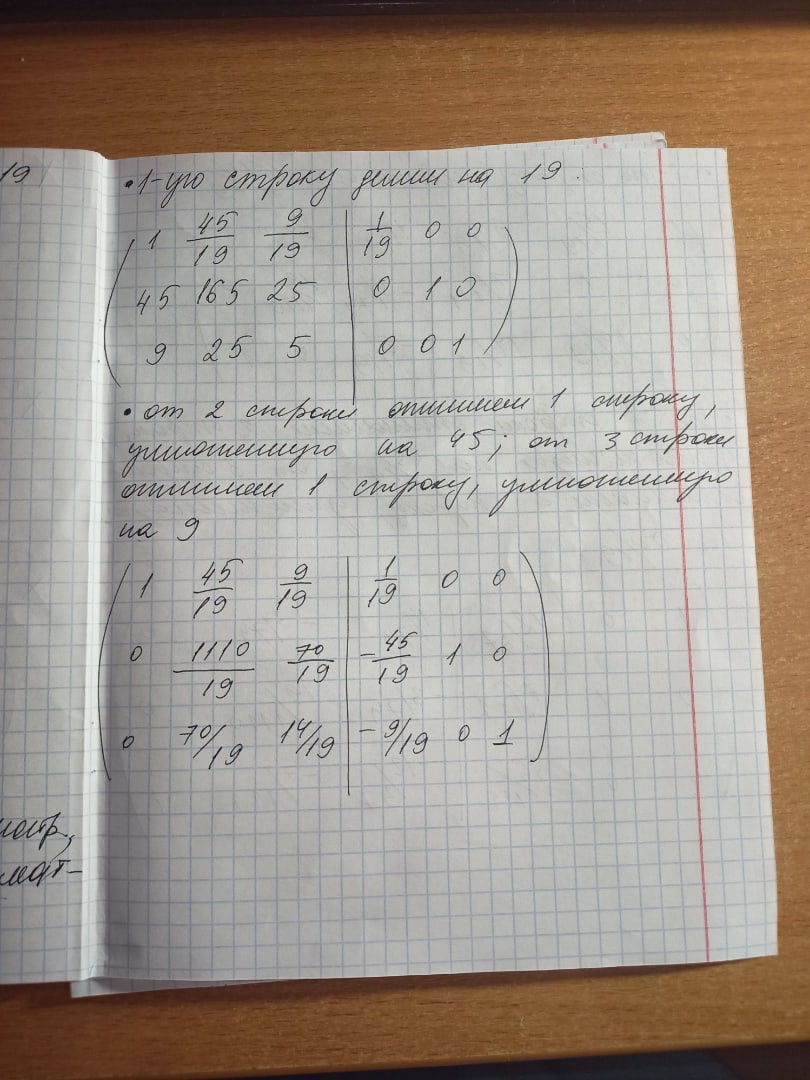 19
• 1-ую строку делим на 19.
1 45/19 9/19 | 1/19 0 0
45 165 25 | 0 1 0
9 25 5 | 0 0 1
• от 2 строки отнимаем 1 строку,
умноженную на 45; от 3 строки
отнимаем 1 строку, умноженную
на 9
1 45/19 9/19 | 1/19 0 0
0 1110/19 70/19 | -45/19 1 0
0 70/19 14/19 | -9/19 0 1
мат-